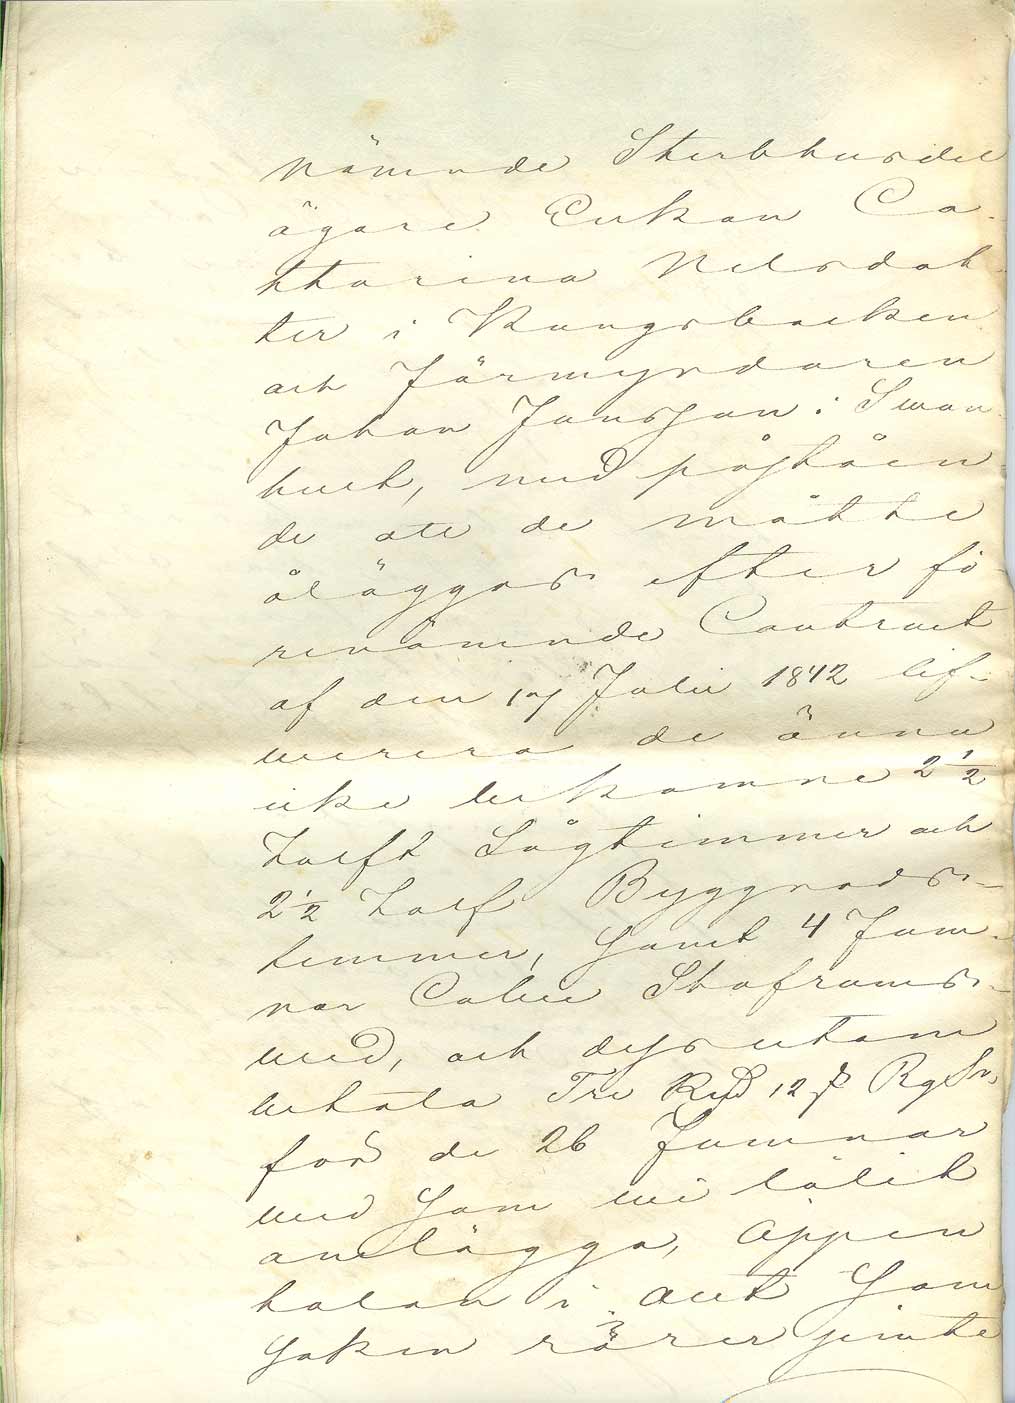 nämnde Sterbhusdel
ägare Enkan Ca-
ttarina Nilsdot-
ter i Kungsbacken
och Förmyndaren
Johan Jansson i Swan-
hult, med påståen-
de att de måtte
åläggas efter fö-
renämnde Contract
af den 17 Julii 1842 lef-
werera de ännu
icke bekomne 2 1/2
tolft Sågtimmer och
2 1/2 tolf Byggnads-
timmer, samt 4 Fam-
nar Stafrums-
wed, och dessutom
betala Tre Rd 12 s Rgs
för de 26 Famnar
wed som wi låtit
anlägga, öppen
talan i allt som
saken rörer jemte